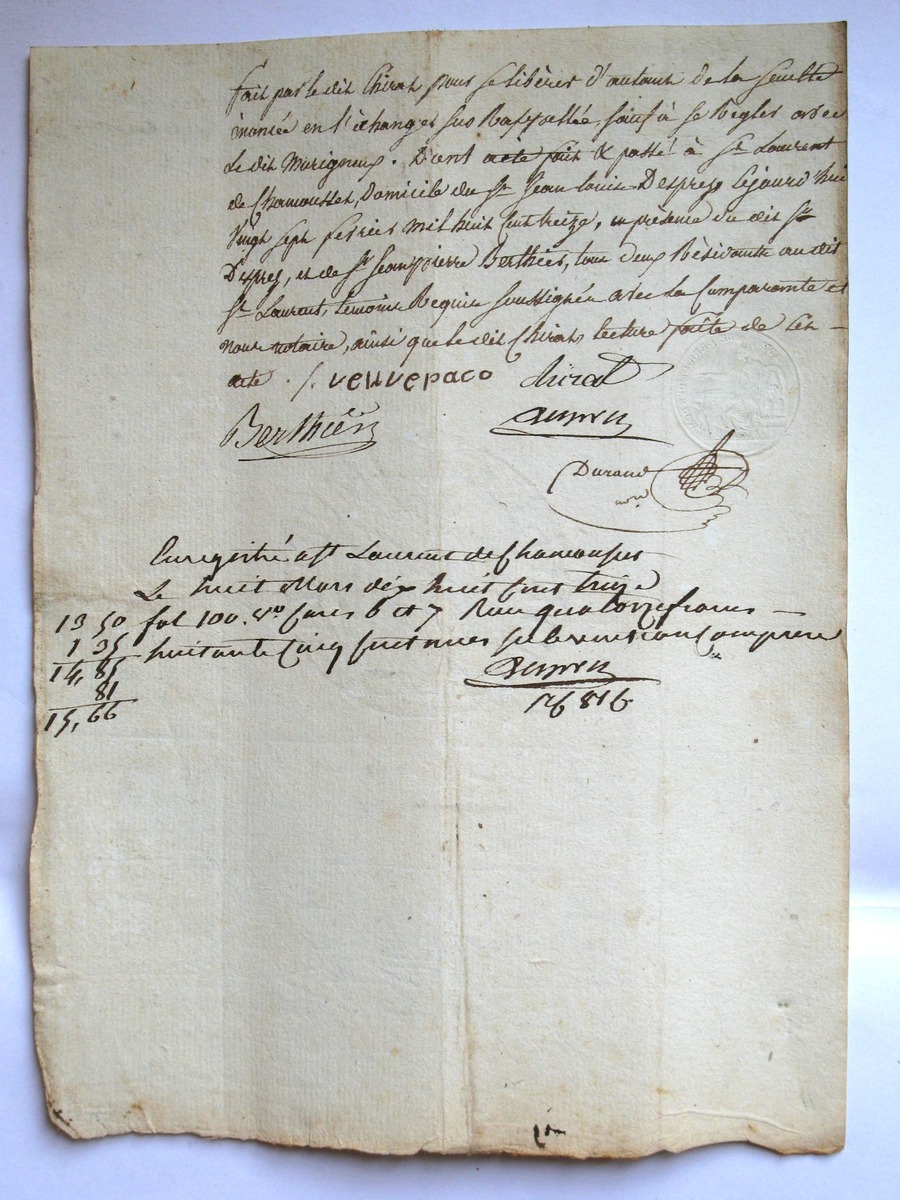 fait par le dit Chirat pour se libérer d'autant de la Soulte
énoncée en l'échange sus Rappellée, sauf à se Regler avec
Le dit Murigneux. Dont acte fait & passé à St. Laurent
de Chamousset, Domicile du Sr. Jean Louis Desprez Cejourd'hui
Vingt sept fevrier mil huit Cent treize, en présence du dit Sr.
Desprez, et de Sr. Jean pierre Berthier, tous deux Résidants au dit
St. Laurent, témoins Requis Soussignés avec la Comparante et
nous notaire, ainsi que le dit Chirat, lecture faite de cet
acte ./. veuvepaco chirat
Berthiér
Durand
nore
Enregistré a St Laurent de Chamousset
Le huit Mars dix huit Cent treize
13 50 fol 100. Vo. Cases 6 et 7 Reçu quatorze francs
1 35 huitante Cinq Centimes Subvention Comprise
14, 85
81
15, 66